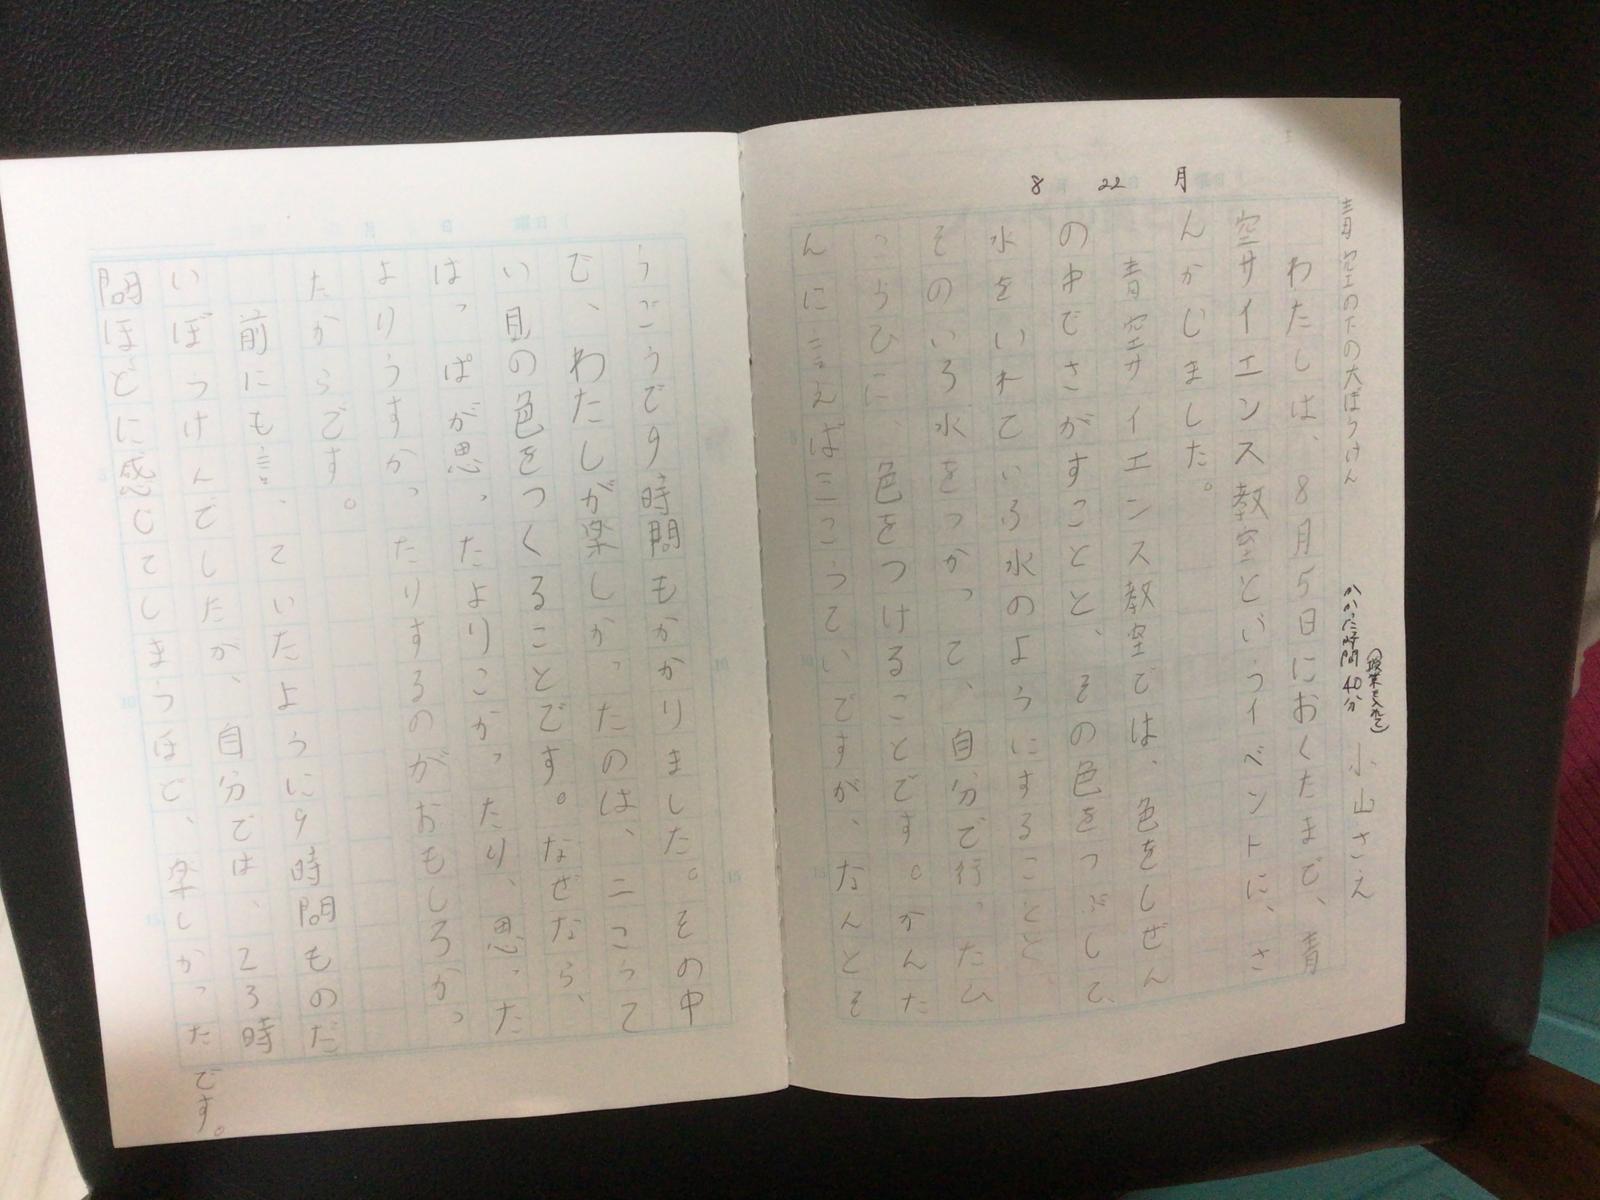 8 22 月
青空の下の大ぼうけん
かかった時間40分
小山さえ
わたしは、8月5日におくたまで、青
空サイエンス教室というイベントに、さ
んかしました。
青空サイエンス教室では、色をしぜん
の中でさがすことと、その色をつぶして、
水をいれていろ水のようにすることと、
そのいろ水をつかって、自分で行ったひ
こうひに、色をつけることです。かんた
んに言えば三こっていいですが、なんとそ
うごうで9時間もかかりました。その中
で、わたしが楽しかったのは、二こって
い目の色をつくることです。なぜなら、
はっぱが思ったよりこかったり、思った
よりうすかったりするのがおもしろかっ
たからです。
前にも言っていたように9時間ものだ
いぼうけんでしたが、自分では、23時
間ほどに感じてしまうほど、楽しかったです。